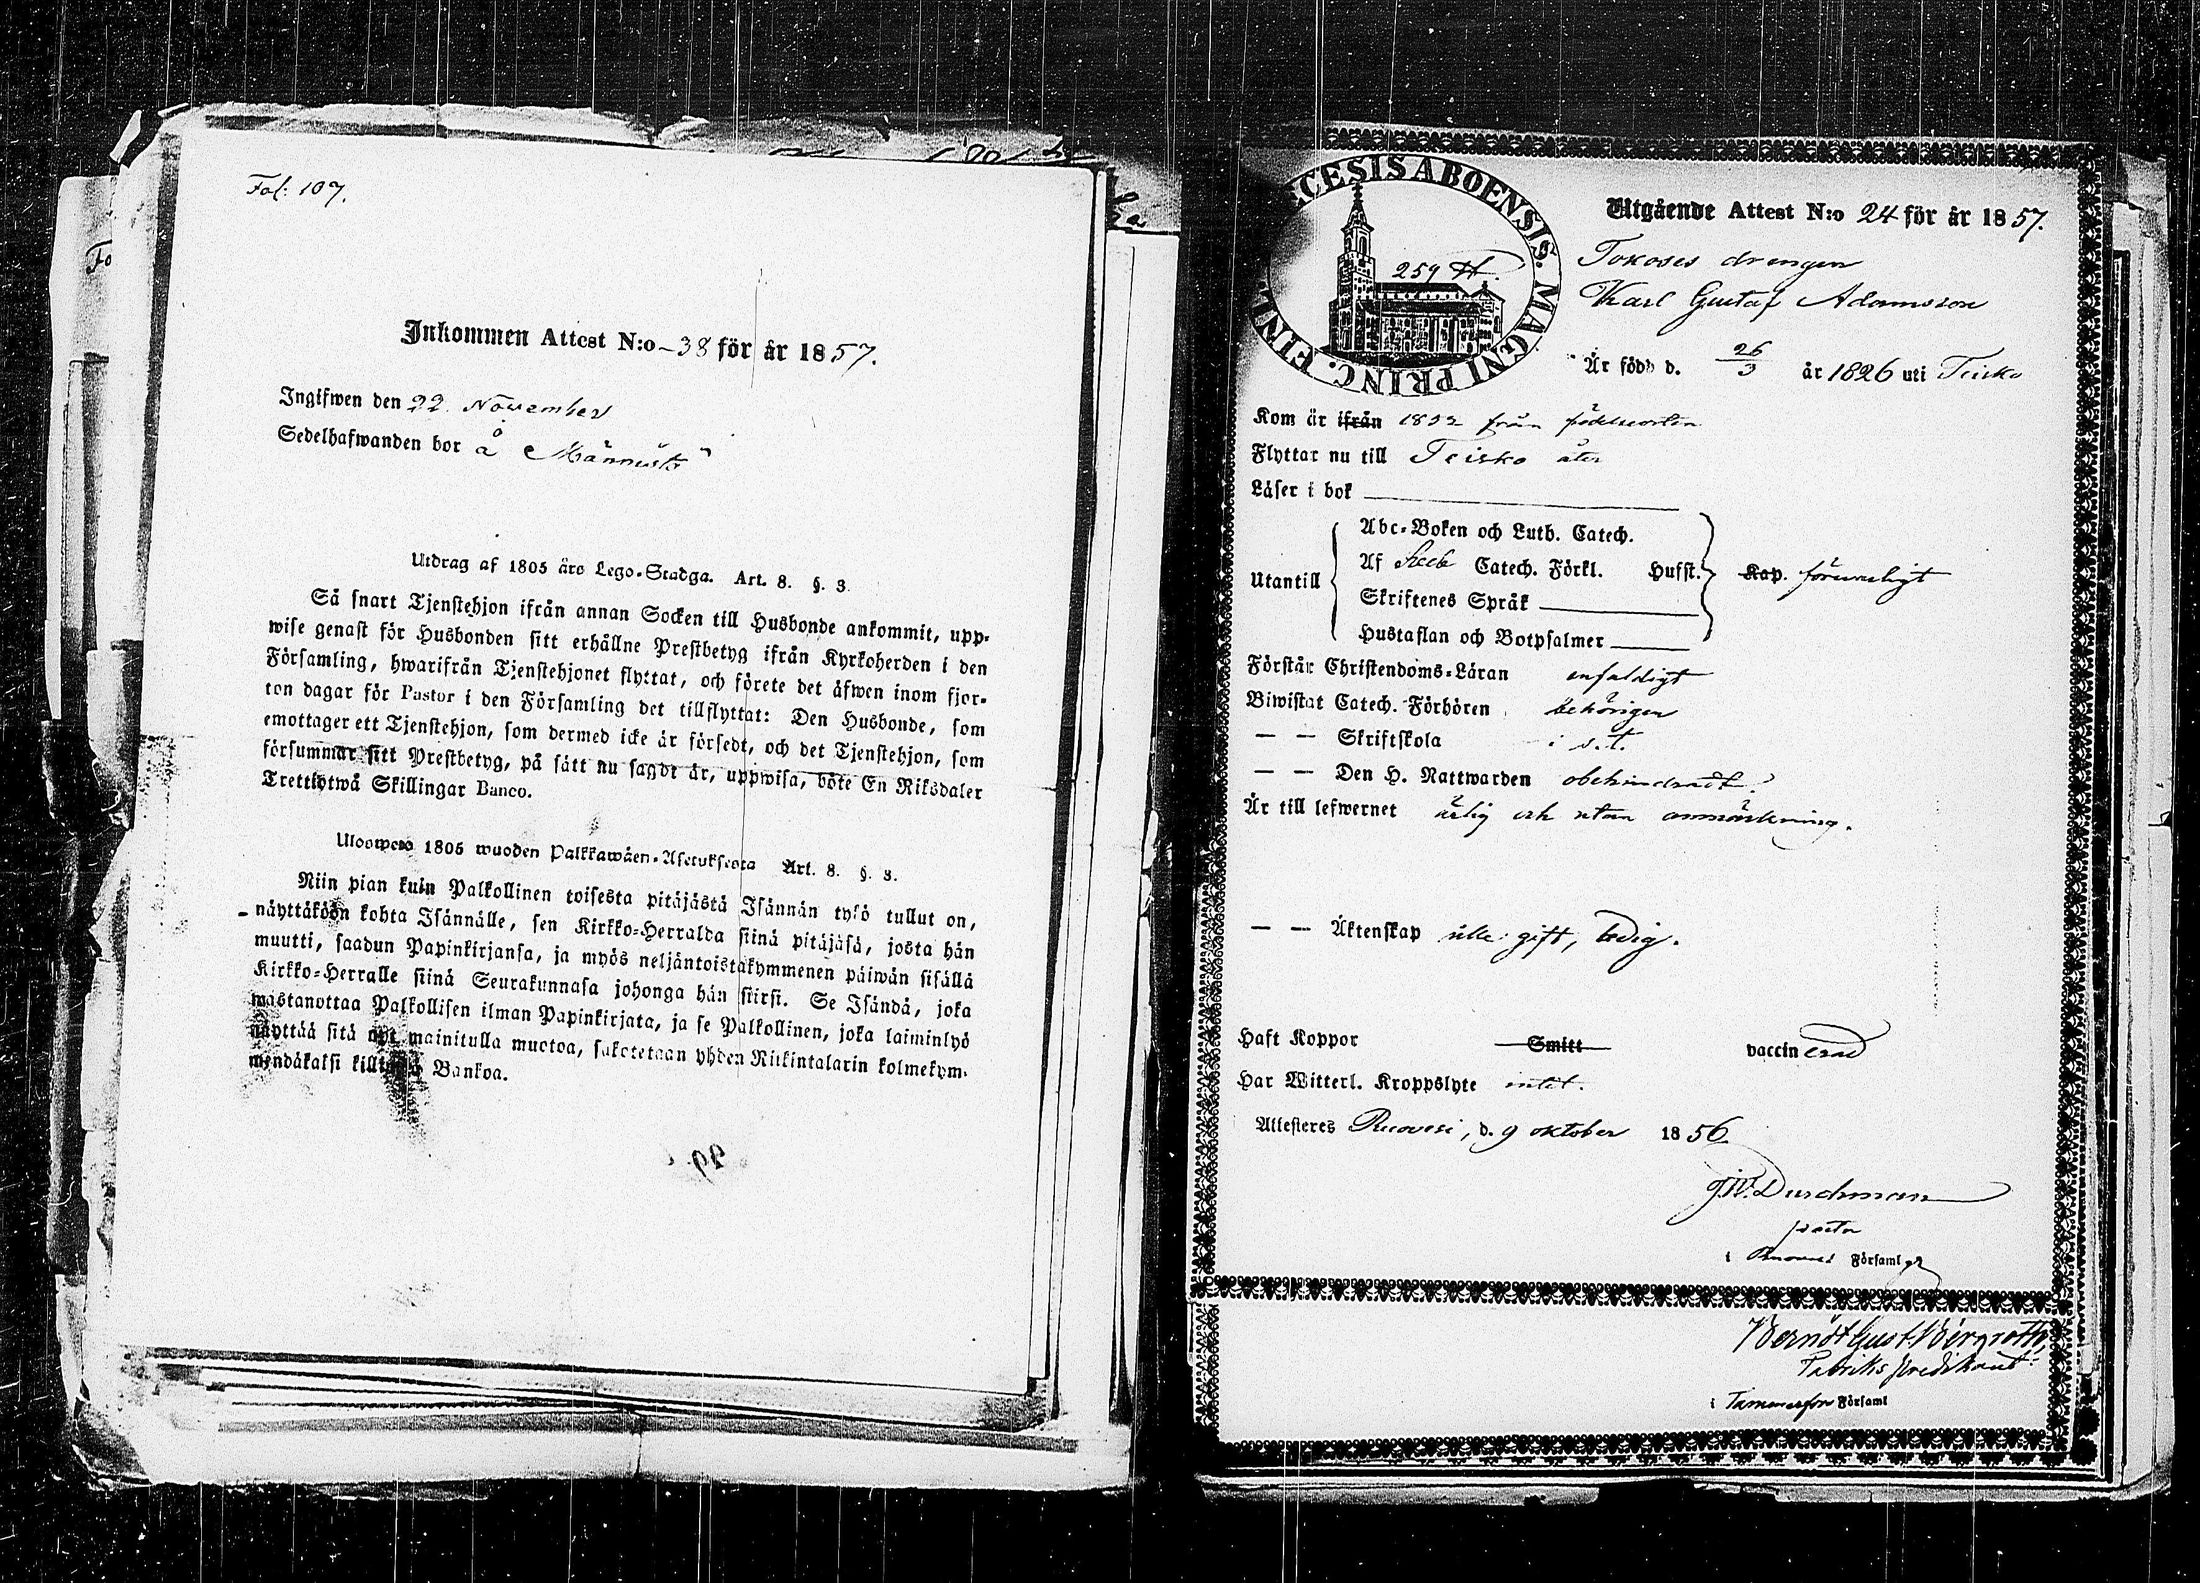 Fol: 107.
Inkommen Attest N:o 38 för år 1857.
Ingifwen den 22 November
Sedelhafwanden bor å Männistö
Utdrag af 1805 års Lego-Stadga. Art. 8. §. 3.
Så snart Tjenstehjon ifrån annan Socken till Husbonde ankommit, upp-
wise genast för Husbonden sitt erhållne Prestbetyg ifrån Kyrkoherden i den
Församling, hwarifrån Tjenstehjonet flyttat, och förete det äfwen inom fjor-
ton dagar för Pastor i den Församling det tillflyttat: Den Husbonde, som
emottager ett Tjenstehjon, som dermed icke är försedt, och det Tjenstehjon, som
försummar sitt Prestbetyg, på sätt nu sagdt är, uppwisa, böte En Riksdaler
Trettiotwå Skillingar Banco.
Ulosweto 1805 wuoden Palkkawäen-Asetuksesta Art. 8. §. 3.
Niin pian kuin Palkollinen toisesta pitäjästä Isännän tykö tullut on,
näyttäköön kohta Isännälle, sen Kirkko-Herralda siinä pitäjäsä, josta hän
muutti, saadun Papinkirjansa, ja myös neljäntoistakymmenen päiwän sisällä
Kirkko-Herralle siinä Seurakunnasa johonga hän siirsi. Se Isändä, joka
wastanottaa Palkollisen ilman Papinkirjata, ja se Palkollinen, joka laiminlyö
näyttää sitä nyt mainitulla muotoa, sakotetaan yhden Riikintalarin kolmekym-
mendäkaksi killingiä Bankoa.
DIOECESIS ABOENSIS. MAGNI PRINC. FINL
259 H.
Utgående Attest N:o 24 för år 1857.
drengen
Karl Gustaf Adamsson
Är född d. 26/3 år 1826 uti Teisko
Kom är ifrån 1852 från födelseorten
Flyttar nu till Teisko åter
Läser i bok
Utantill
Abc-Boken och Luth. Catech.
Af Catech. Förkl. Hufst. Kap. försvarligt
Skriftenes Språk
Hustaflan och Botpsalmer
Förstår Christendoms-Läran enfaldigt
Biwistat Catech. Förhören behörigen
— — Skriftskola i s. t.
— — Den H. Nattwarden obehindradt.
Är till lefwernet ärlig och utan anmärkning.
— — Äktenskap icke gift, ledig.
Haft Koppor Smitt vaccinerad
Har Witterl. Kroppslyte intet.
Attesteres Ruovesi, d. 9 oktober 1856
Durchman
pastor
i Ruovesi Församl
Berndt Gust Bergroth,
Fabriks predikant
i Tammerfors Församl